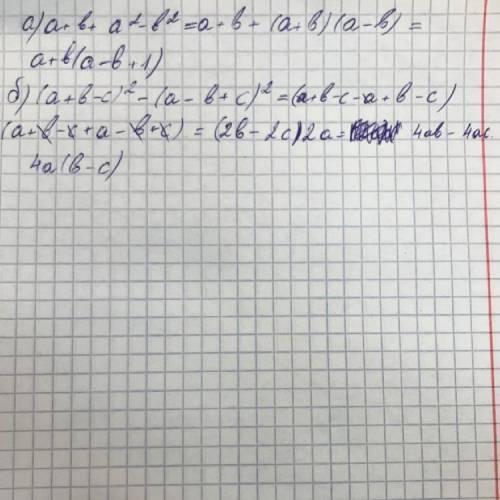 а) a+b+ a²-b² =a+b + (a+b)(a-b) =
a+b(a-b+1)
б) (a+b-c)² - (a-b+c)² = (a+b-c-a+b-c)
(a+b-c+a-b+c) = (2b-2c)2a= 4ab-4ac
4a(b-c)